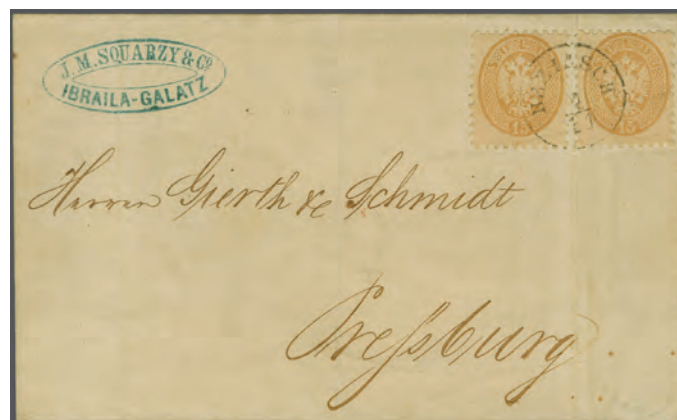 J. M. SQUARZY & Cº
IBRAILA-GALATZ
15 15
Herren Gierth & Schmidt
Preſsburg